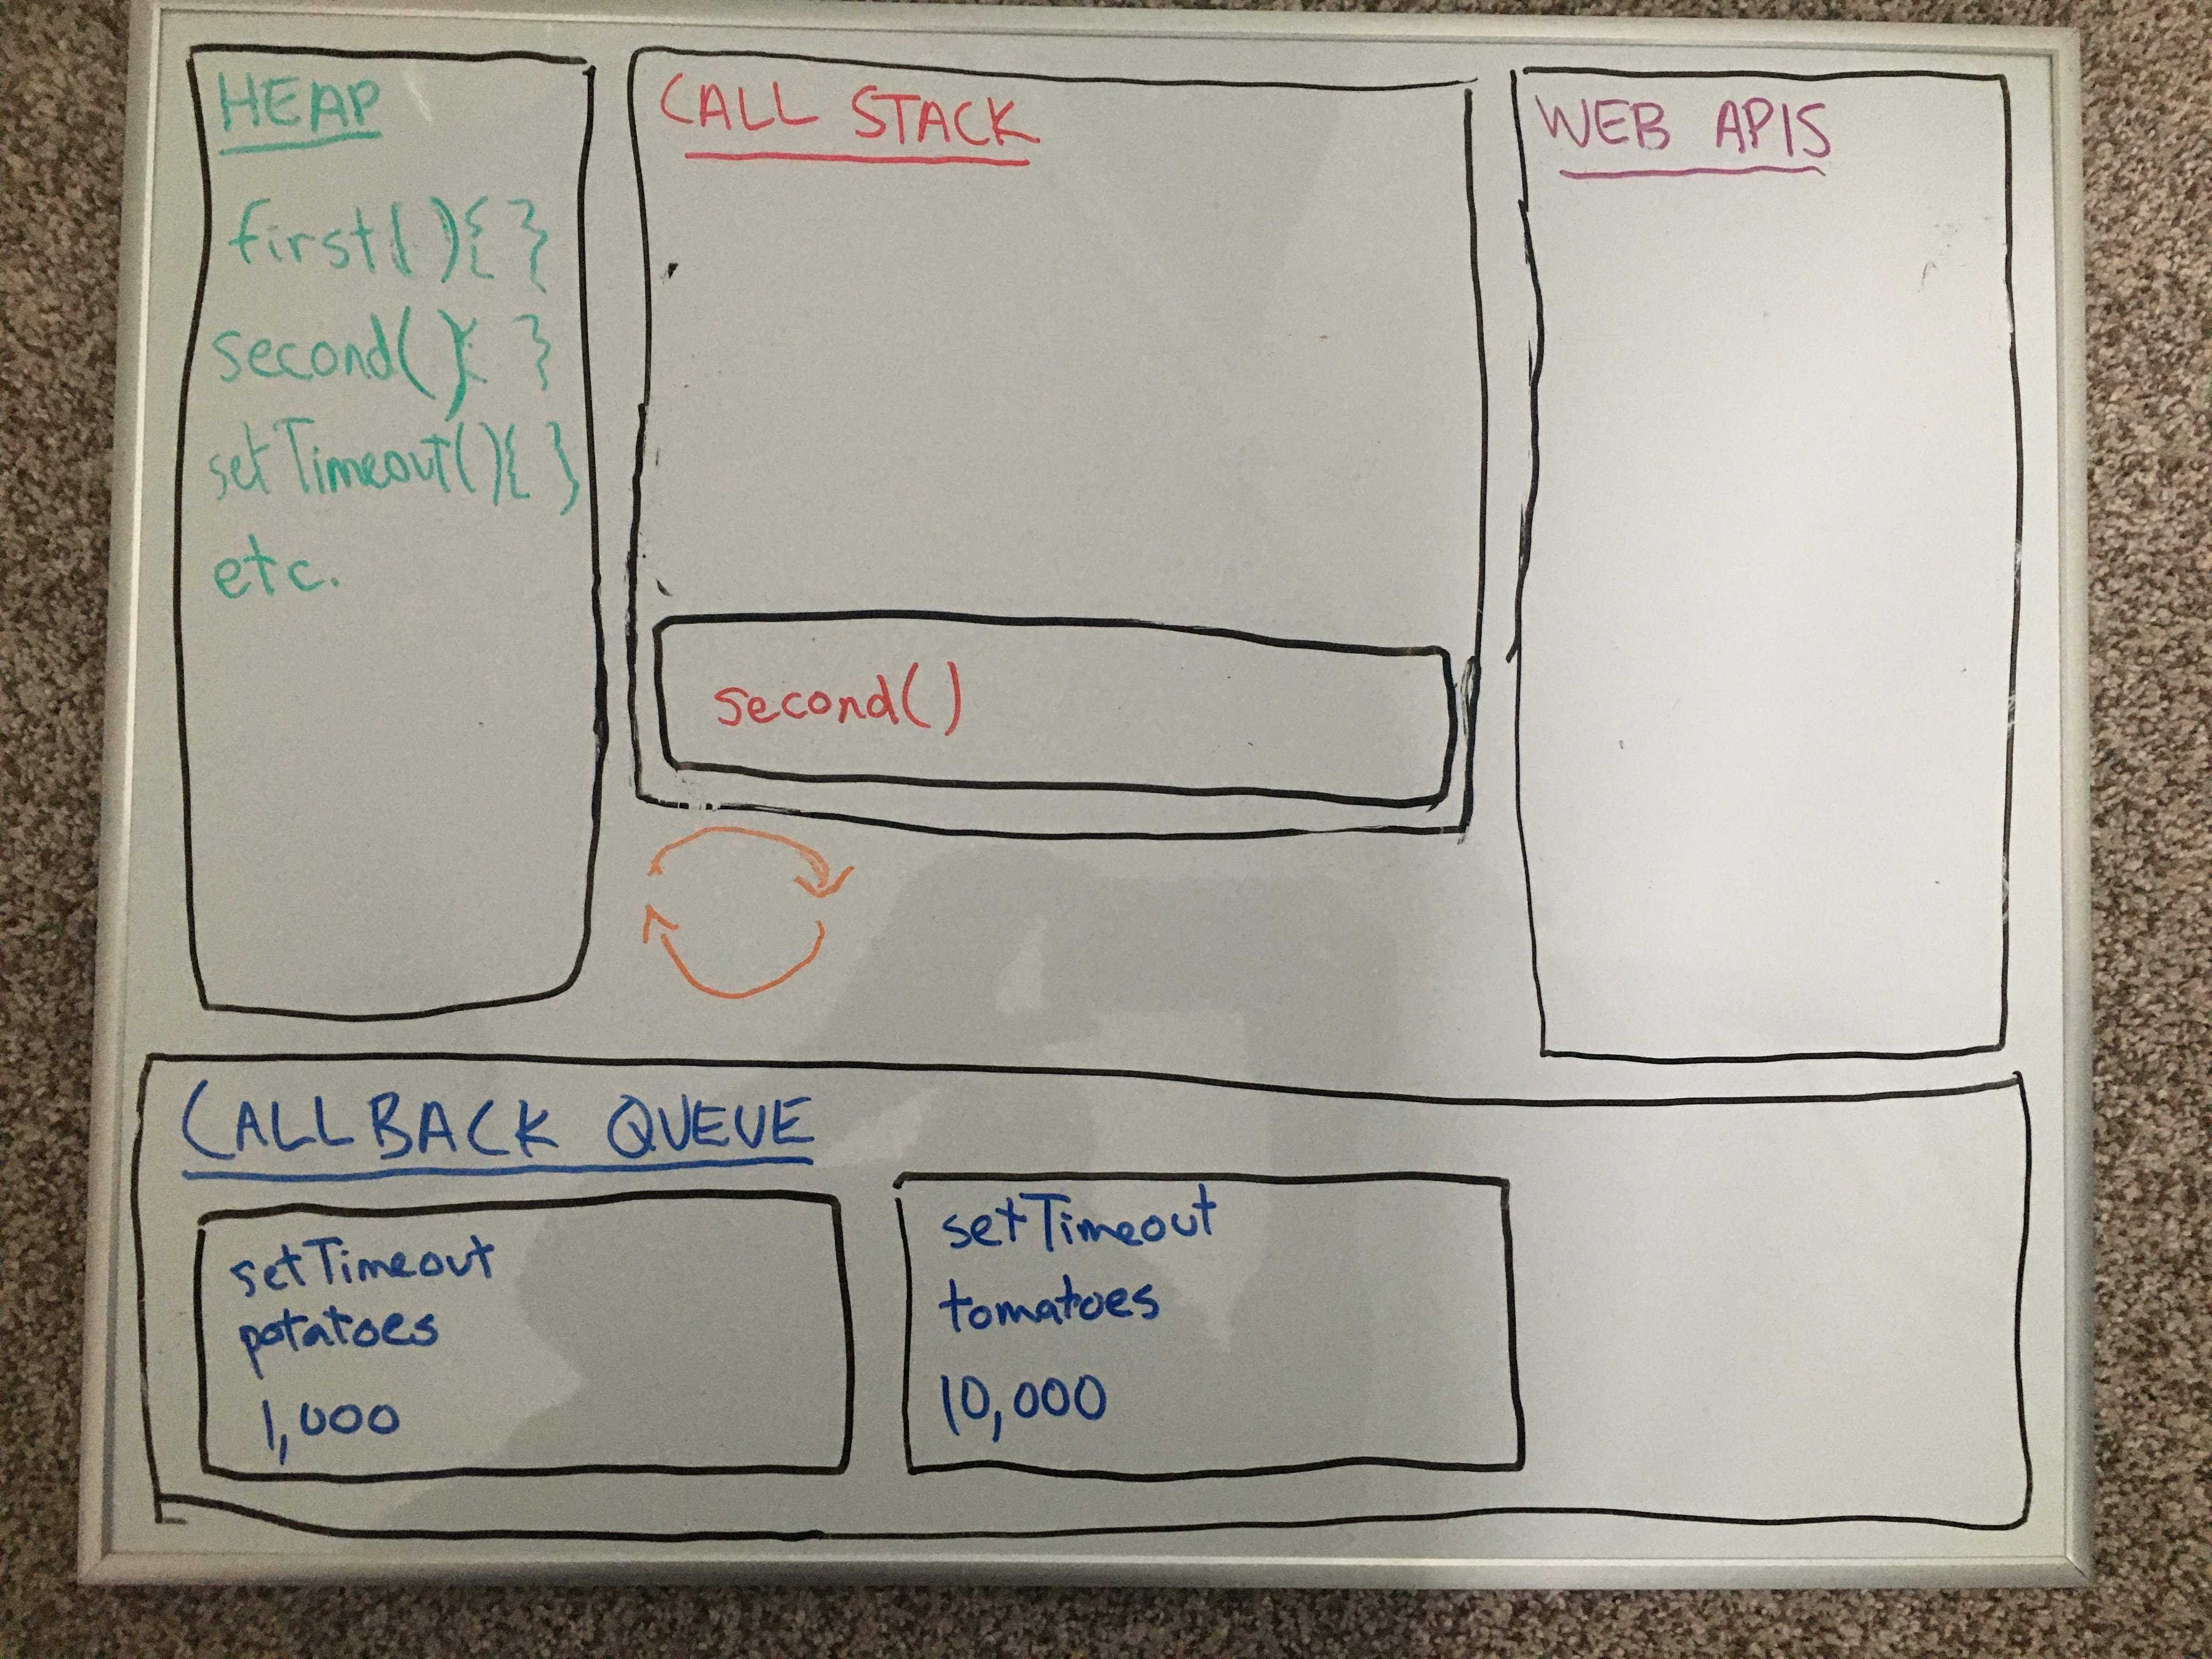 HEAP
first(){ }
second(){ }
setTimeout(){ }
etc.
CALL STACK
second()
WEB APIS
CALLBACK QUEUE
setTimeout
potatoes
1,000
setTimeout
tomatoes
10,000